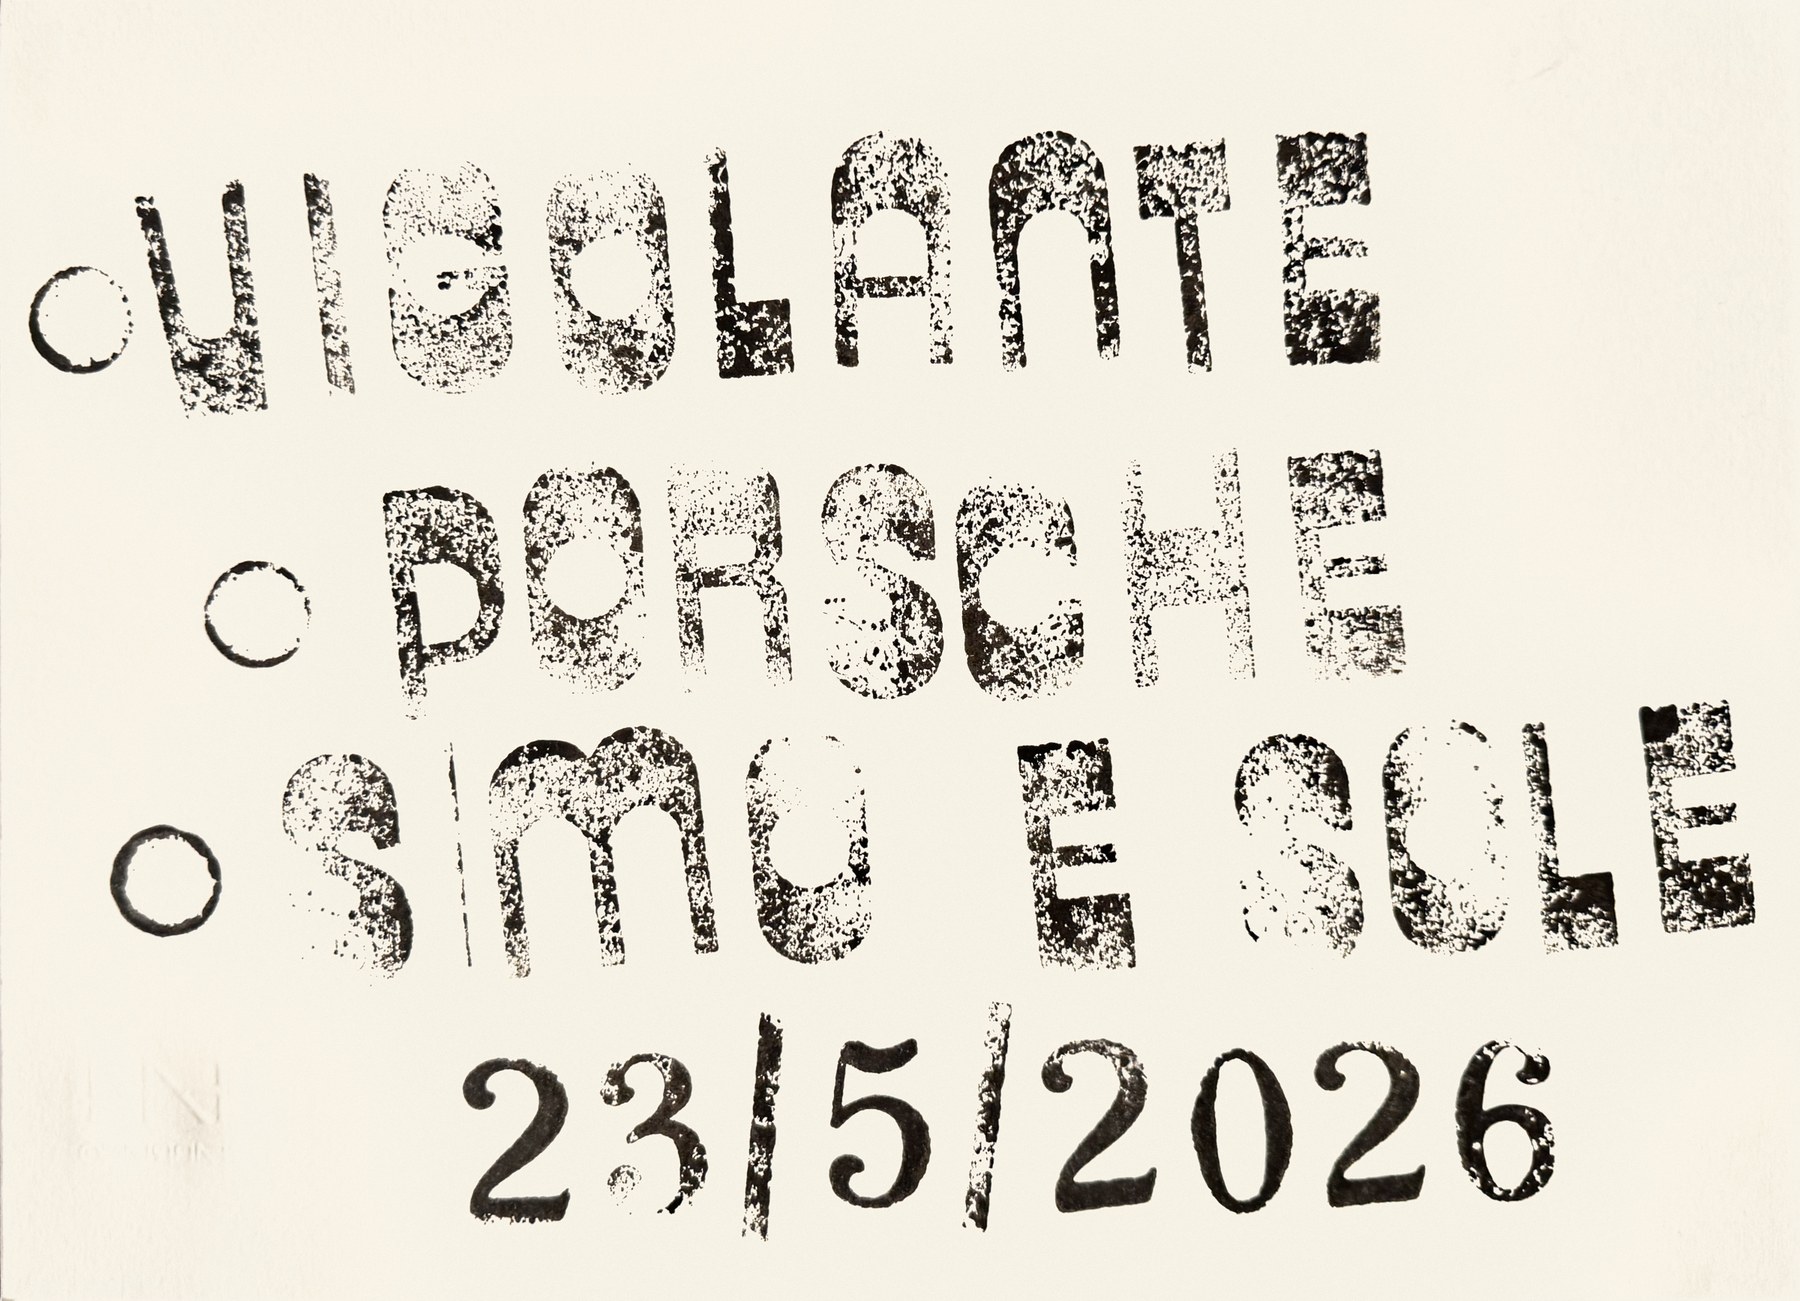 ○ VIGOLANTE
○ PORSCHE
○ SIMO E SOLE
23/5/2026